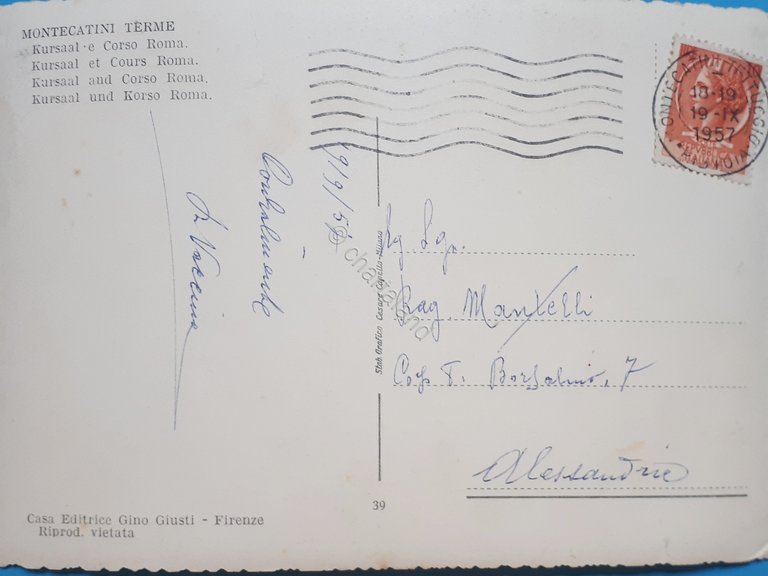 MONTECATINI TERME
Kursaal e Corso Roma.
Kursaal et Cours Roma.
Kursaal and Corso Roma.
Kursaal und Korso Roma.
18-19
19-IX
1957
19/9/57
Cordialmente
Stab. Grafico Cesare Capello-Milano
Rag. Mantelli
Borsalino, 7
Alessandria
39
Casa Editrice Gino Giusti - Firenze
Riprod. vietata